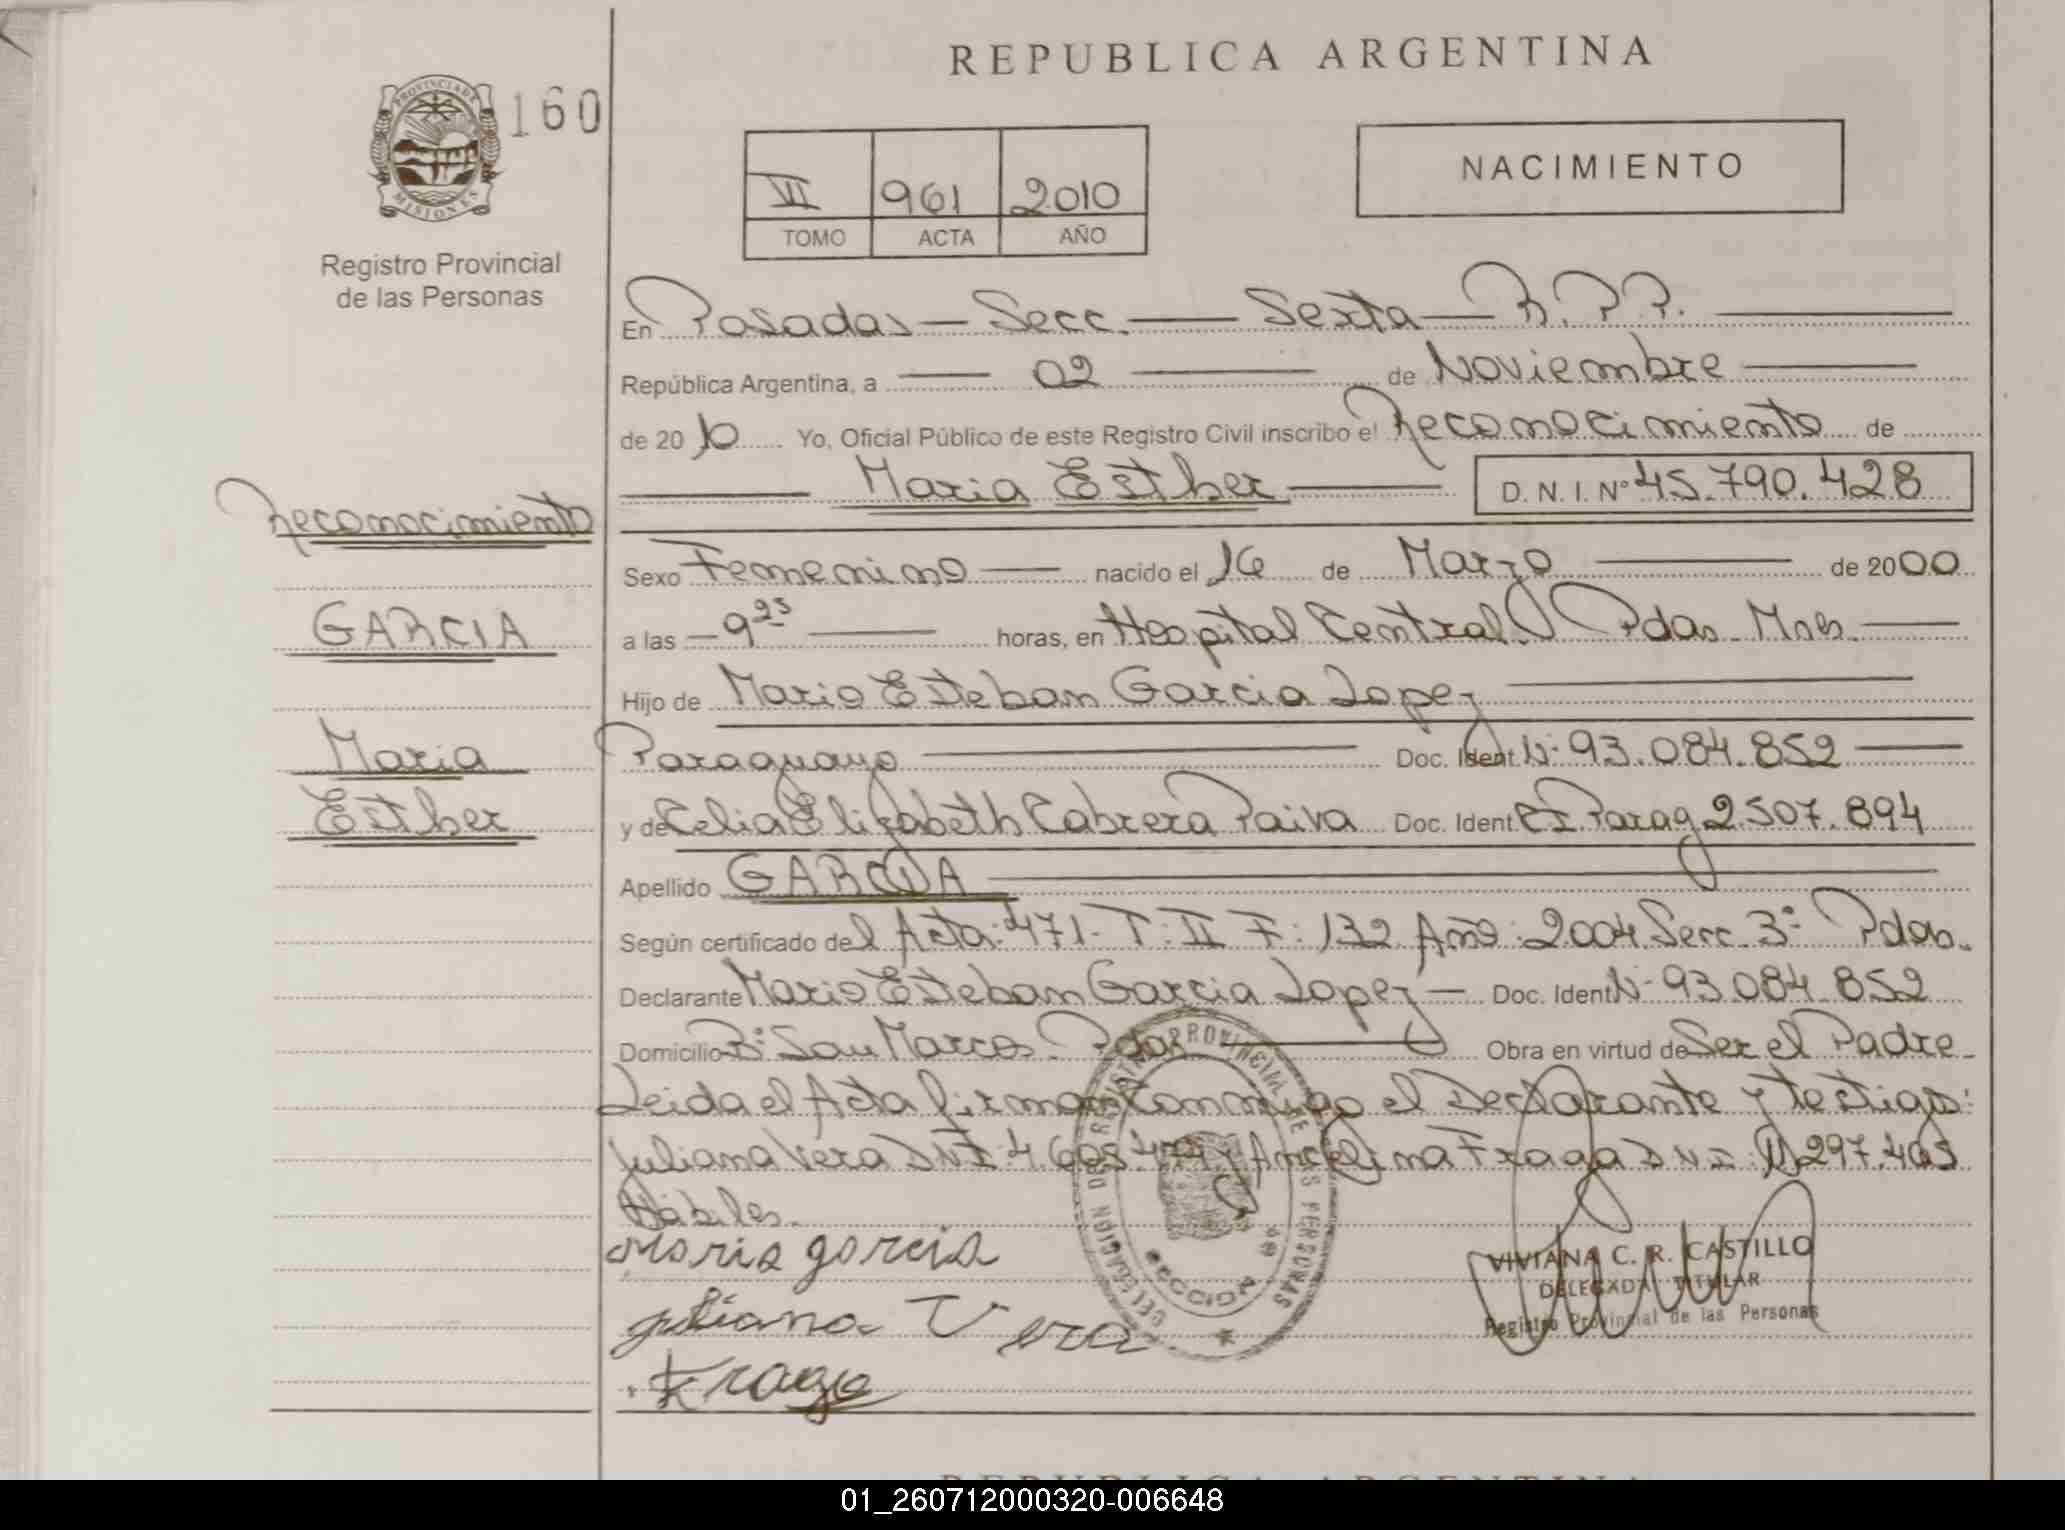 REPUBLICA ARGENTINA
PROVINCIA DE MISIONES
160
VI 961 2010
TOMO ACTA AÑO
NACIMIENTO
Registro Provincial
de las Personas
En Posadas — Secc. — Sexta — R.P.P. —
República Argentina, a — 02 — de Noviembre —
de 2010 Yo, Oficial Público de este Registro Civil inscribo el Reconocimiento de
— Maria Esther — D. N. I. Nº 45.790.428
Reconocimiento
Sexo Femenino — nacido el 16 de Marzo — de 2000
GARCIA
a las — 9 25 — horas, en Hospital Central. Pdas. Mnes. —
Hijo de Mario Esteban Garcia Lopez —
Maria
Paraguayo — Doc. Ident. Nº 93.084.852 —
Esther
y de Celia Elizabeth Cabrera Paiva Doc. Ident. CI. Parag 2.507.894
Apellido GARCIA —
Según certificado del Acta: 471- T: II F: 132 Año: 2004 Secc. 3ª Pdas.
Declarante Mario Esteban Garcia Lopez — Doc. Ident. Nº 93.084.852
Domicilio Bº San Marcos. Pdas — Obra en virtud de Ser el Padre.
Leida el Acta firman conmigo el Declarante y testigos:
Juliana Vera DNI: y Fraga DNI:
Hábiles.
Mario garcia
juliana Vera
Fraga
DELEGACION DE REGISTRO PROVINCIAL DE LAS PERSONAS
SECCION 6ª
VIVIANA C. R. CASTILLO
DELEGADA TITULAR
Registro Provincial de las Personas
REPUBLICA ARGENTINA
01_260712000320-006648